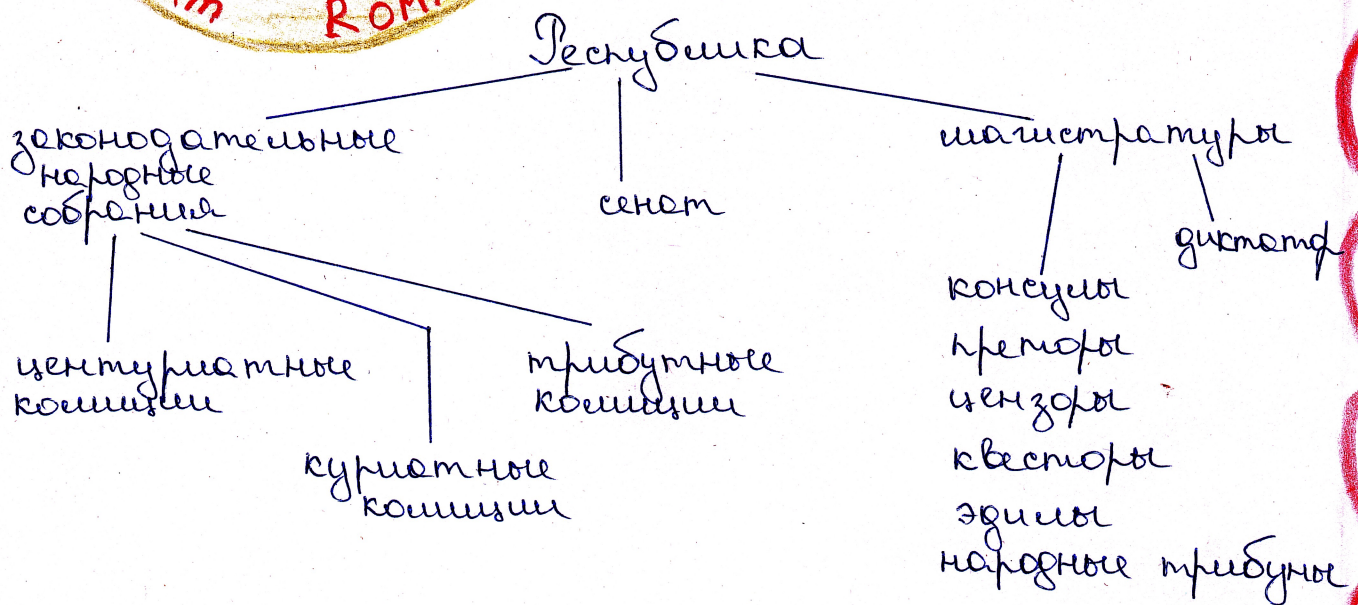 Республика
законодательные
народные
собрания
сенат
магистратуры
диктатор
центуриатные
комиции
куриатные
комиции
трибутные
комиции
консулы
преторы
цензоры
квесторы
эдилы
народные трибуны